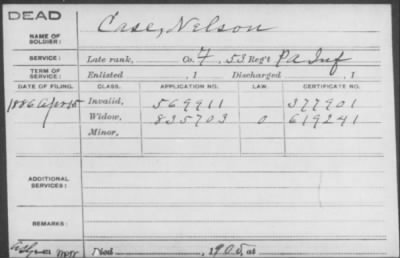 DEAD
NAME OF SOLDIER: Case, Nelson
SERVICE: Late rank, Co. F, 53 Reg't Pa Inf
TERM OF SERVICE: Enlisted , 1 Discharged , 1
DATE OF FILING. CLASS. APPLICATION NO. LAW. CERTIFICATE NO.
1886 Apr 15 Invalid, 569911 377901
Widow, 835703 0 619241
Minor,
ADDITIONAL SERVICES:
REMARKS:
Died , 1905, at